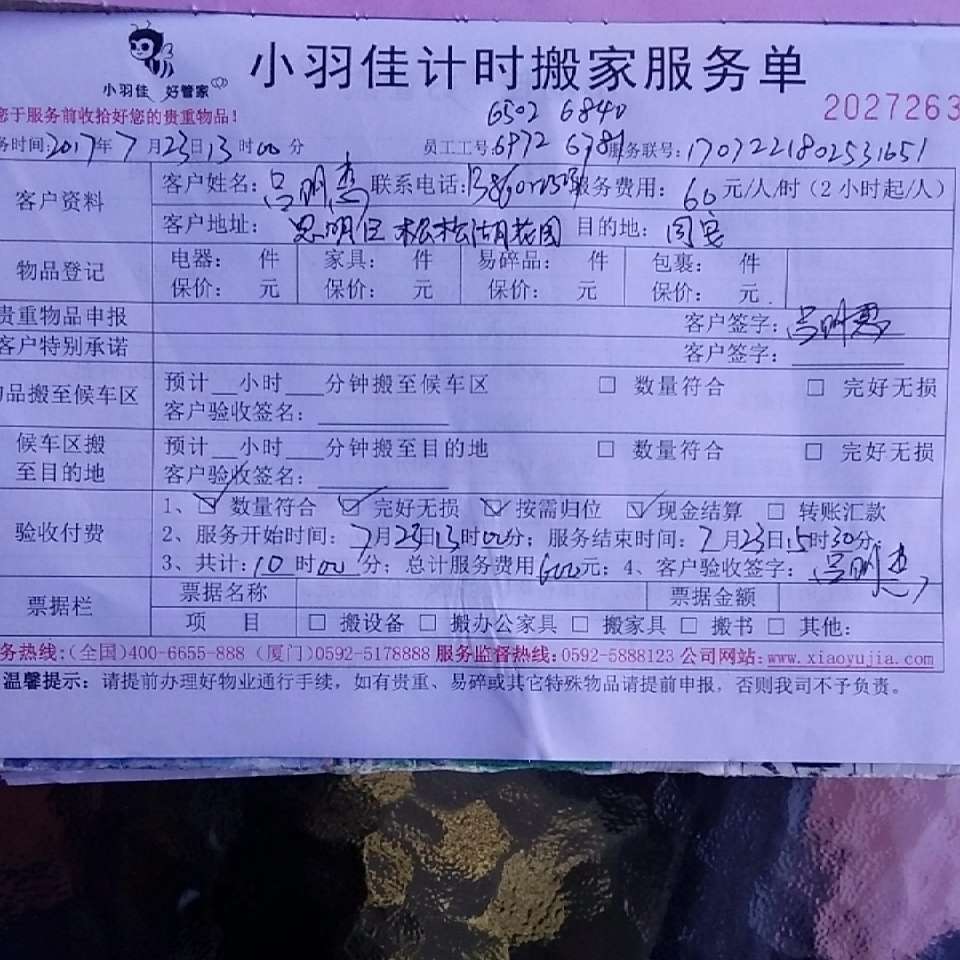 小羽佳计时搬家服务单
小羽佳 好管家
2027263
您于服务前收拾好您的贵重物品!
6502 6840
务时间:2017年7月23日13时00分 员工工号:6972 6781 服务联号:1707221802531651
客户资料 客户姓名: 联系电话: 服务费用: 60元/人/时 (2小时起/人)
客户地址: 思明区 松湖花园 目的地: 同安
物品登记 电器: 件 家具: 件 易碎品: 件 包裹: 件
保价: 元 保价: 元 保价: 元 保价: 元
贵重物品申报 客户签字:
客户特别承诺 客户签字:
物品搬至候车区 预计__小时___分钟搬至候车区 □ 数量符合 □ 完好无损
客户验收签名:
候车区搬至目的地 预计__小时___分钟搬至目的地 □ 数量符合 □ 完好无损
客户验收签名:
验收付费 1、☑ 数量符合 ☑ 完好无损 ☑ 按需归位 ☑ 现金结算 □ 转账汇款
2、服务开始时间: 7月23日13时00分; 服务结束时间: 7月23日15时30分;
3、共计: 10时00分; 总计服务费用600元; 4、客户验收签字:
票据栏 票据名称 票据金额
项 目 □ 搬设备 □ 搬办公家具 □ 搬家具 □ 搬书 □ 其他:
务热线:(全国)400-6655-888 (厦门)0592-5178888 服务监督热线:0592-5888123 公司网站:www.xiaoyujia.com
温馨提示: 请提前办理好物业通行手续,如有贵重、易碎或其它特殊物品请提前申报,否则我司不予负责。